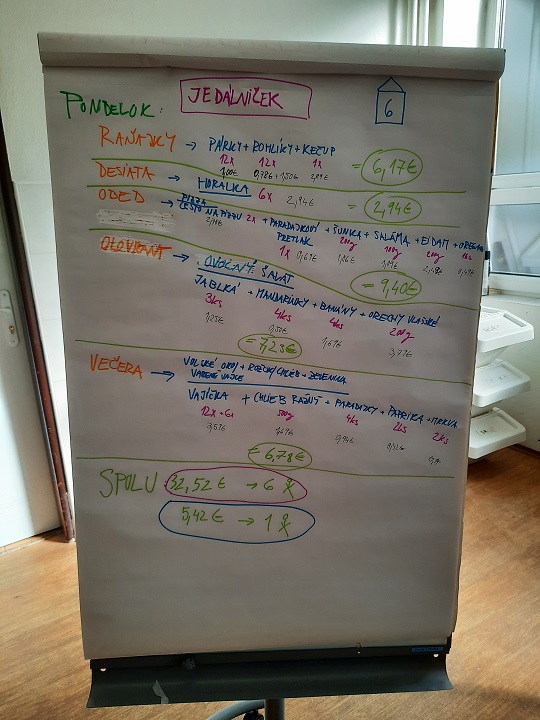 JEDÁLNÍČEK
PONDELOK:
6
RAŇAJKY → PÁRKY + ROHLÍKY + KEČUP
12x 12x 1x = 6,17€
DESIATA → HORALKA
6x 2,94€ = 2,94€
OBED → PIZZA
CESTO NA PIZZU 2x + PARADAJKOVÝ PRETLAK + ŠUNKA + SALÁMA + EIDAM + OREGANO
1x 200g 100g 200g 1ks
= 9,40€
OLOVRANT → OVOCNÝ ŠALÁT
JABLKÁ + MANDARÍNKY + BANÁNY + ORECHY VLAŠSKÉ
3ks 4ks 4ks 200g
= 7,23€
VEČERA → VOLSKÉ OKO / + ROŽKY/CHLIEB + ZELENINA
VARENÉ VAJCE
VAJÍČKA + CHLIEB RAŽNÝ + PARADAJKY + PAPRIKA + MRKVA
12x + 6x 500g 4ks 2ks 2ks
= 6,78€
SPOLU: 32,52€ → 6
5,42€ → 1